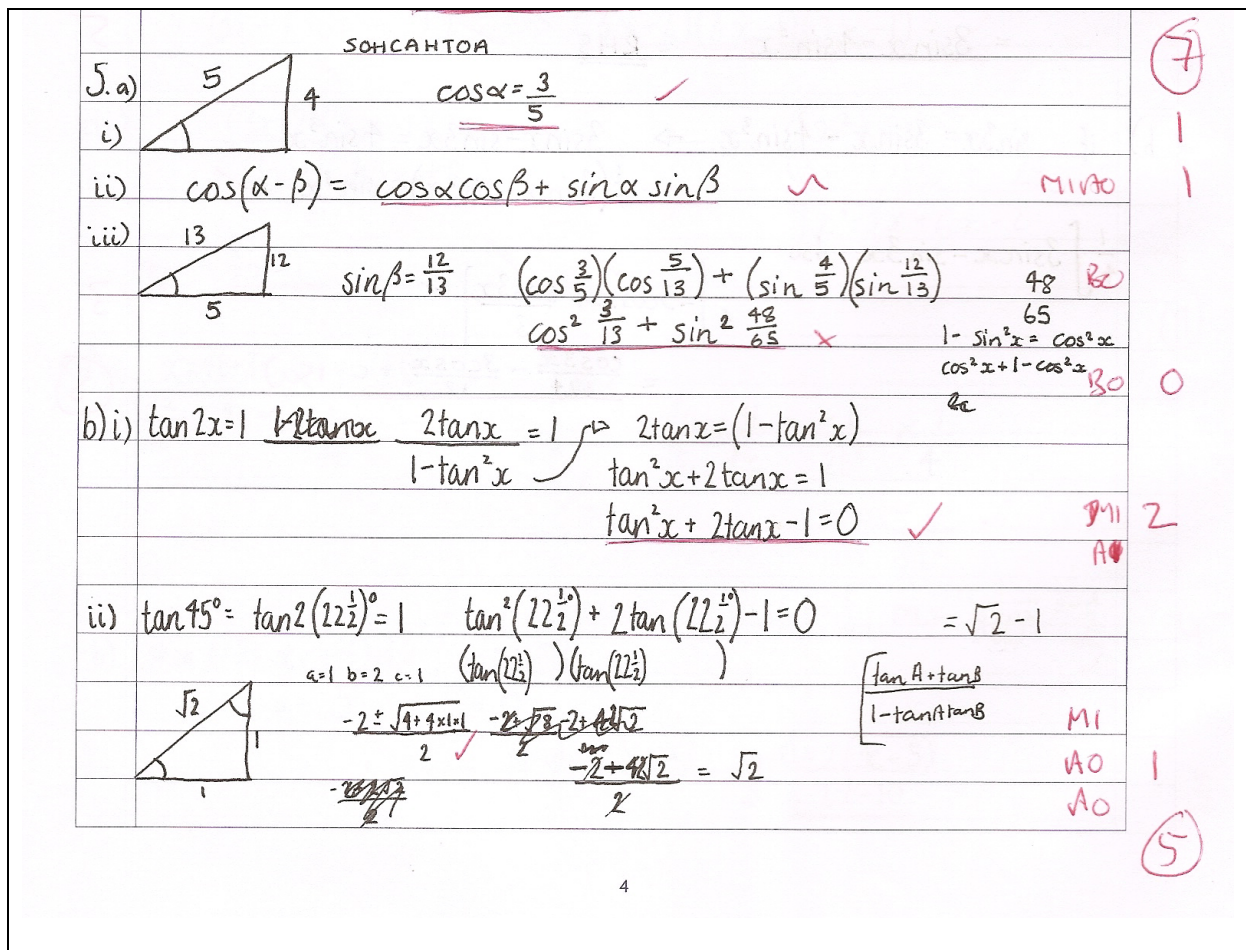 SOHCAHTOA
7
5.a) 5 4 cosα = 3/5 ✓
i) 1
ii) cos(α - β) = cosαcosβ + sinα sinβ M1A0 1
iii) 13 12 5 sinβ = 12/13 (cos 3/5)(cos 5/13) + (sin 4/5)(sin 12/13) 48/65 B0
cos² 3/13 + sin² 48/65 ✗ 1 - sin²x = cos²x
cos²x + 1 - cos²x B0 0
b)i) tan2x=1 2tanx/1-tan²x = 1 2tanx = (1-tan²x)
tan²x + 2tanx = 1
tan²x + 2tanx - 1 = 0 ✓ M1 2
A
ii) tan45° = tan2(22½)° = 1 tan²(22½°) + 2tan(22½°) - 1 = 0 = √2 - 1
a=1 b=2 c=-1 (tan(22½) )(tan(22½) ) tanA+tanB/1-tanAtanB
√2 1 1 -2 ± √4+4×1×1/2 ✓ M1
-2+2√2/2 = √2 A0 1
A0
5
4